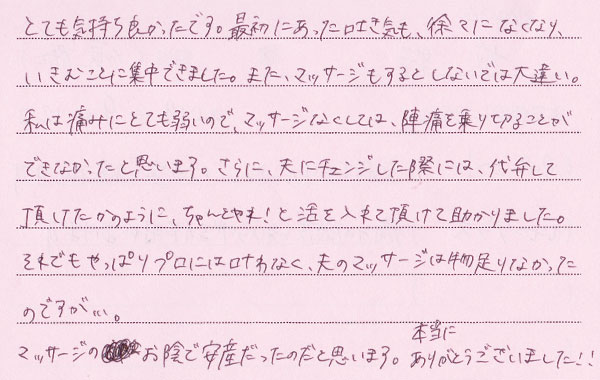 とても気持ち良かったです。最初にあった吐き気も、徐々になくなり、
いきむことに集中できました。また、マッサージもするとしないでは大違い。
私は痛みにとても弱いので、マッサージなくしては、陣痛を乗り切ることが
できなかったと思います。さらに、夫にチェンジした際には、代弁して
頂けたかのように、ちゃんとやれ！と活を入れて頂けて助かりました。
それでもやっぱりプロには叶わなく、夫のマッサージは物足りなかった
のですが…。
マッサージのお陰で安産だったのだと思います。本当にありがとうございました!!